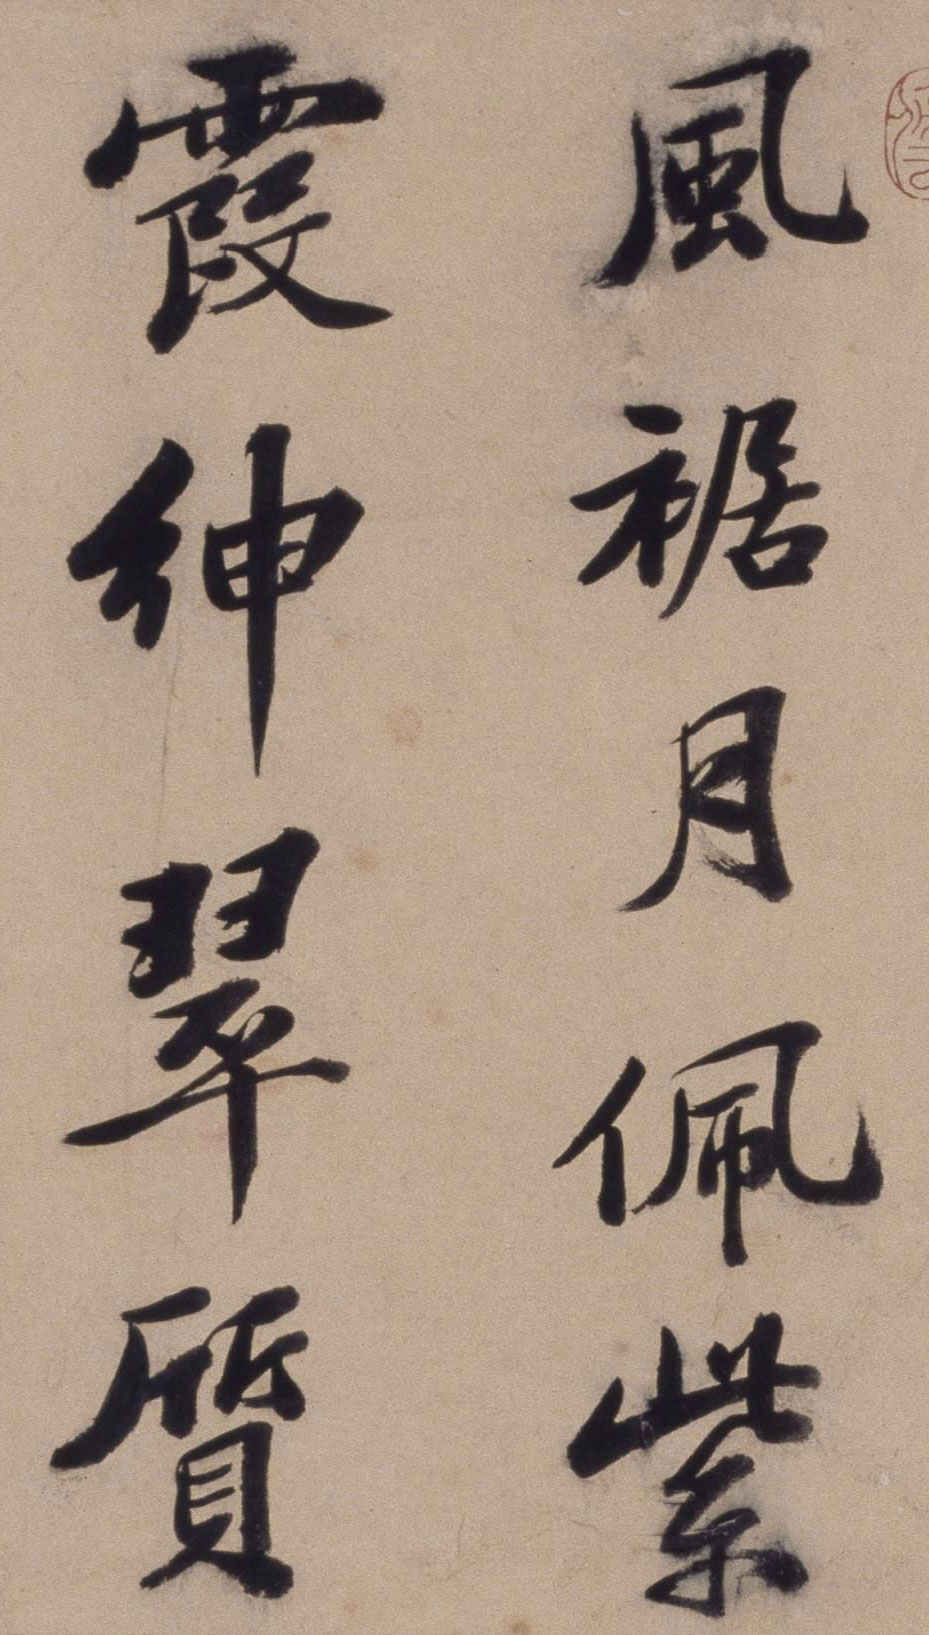 風裾月佩紫
霞紳翠質